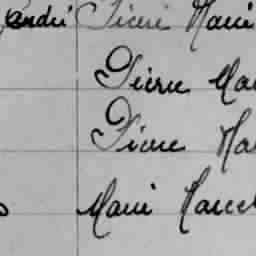 André Pierre Marie
Pierre Ma
Pierre Ma
Marie Marcel